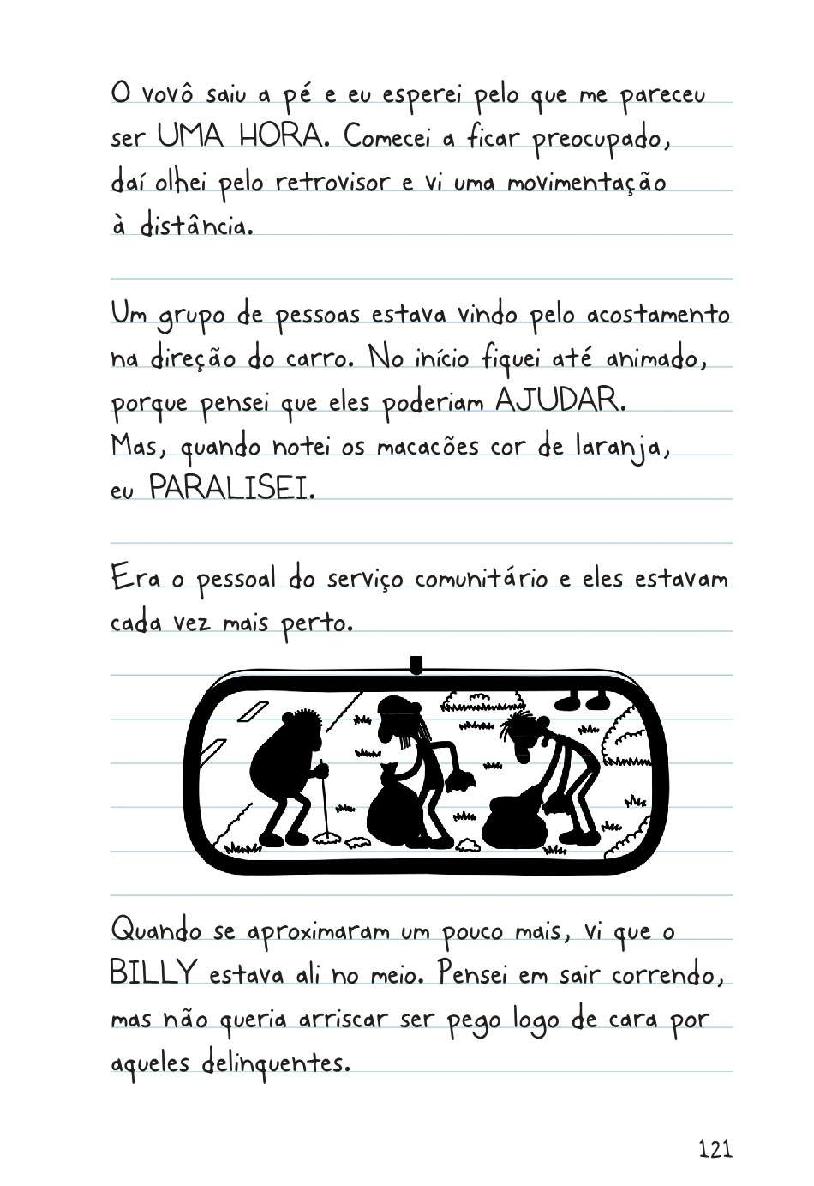 O vovô saiu a pé e eu esperei pelo que me pareceu
ser UMA HORA. Comecei a ficar preocupado,
daí olhei pelo retrovisor e vi uma movimentação
à distância.
Um grupo de pessoas estava vindo pelo acostamento
na direção do carro. No início fiquei até animado,
porque pensei que eles poderiam AJUDAR.
Mas, quando notei os macacões cor de laranja,
eu PARALISEI.
Era o pessoal do serviço comunitário e eles estavam
cada vez mais perto.
Quando se aproximaram um pouco mais, vi que o
BILLY estava ali no meio. Pensei em sair correndo,
mas não queria arriscar ser pego logo de cara por
aqueles delinquentes.
121